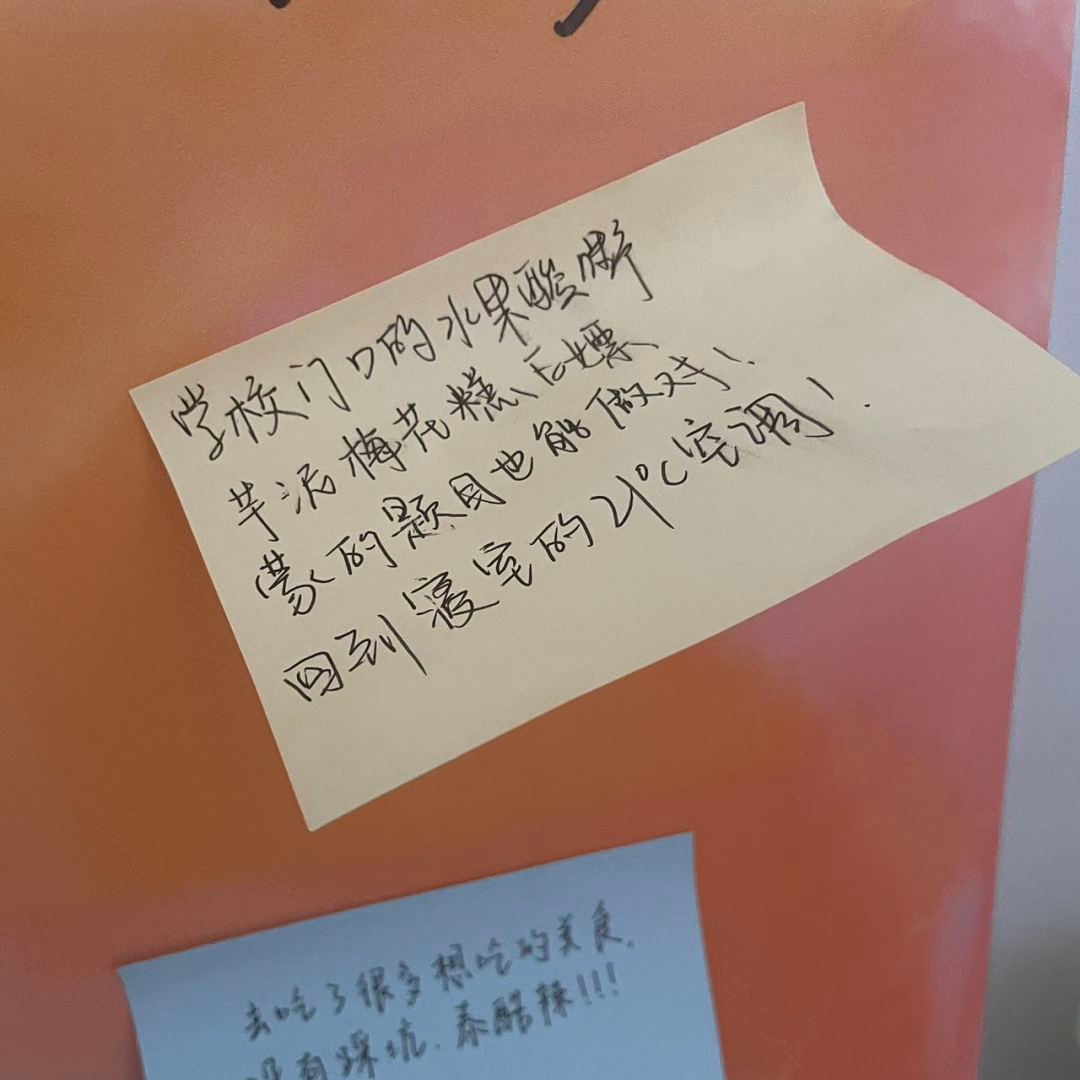 学校门口的水果酸嘢
芋泥梅花糕、
蒙的题目也能做对！
回到寝室的21℃空调！
去吃了很多想吃的美食，
没有踩坑，泰酷辣！！！